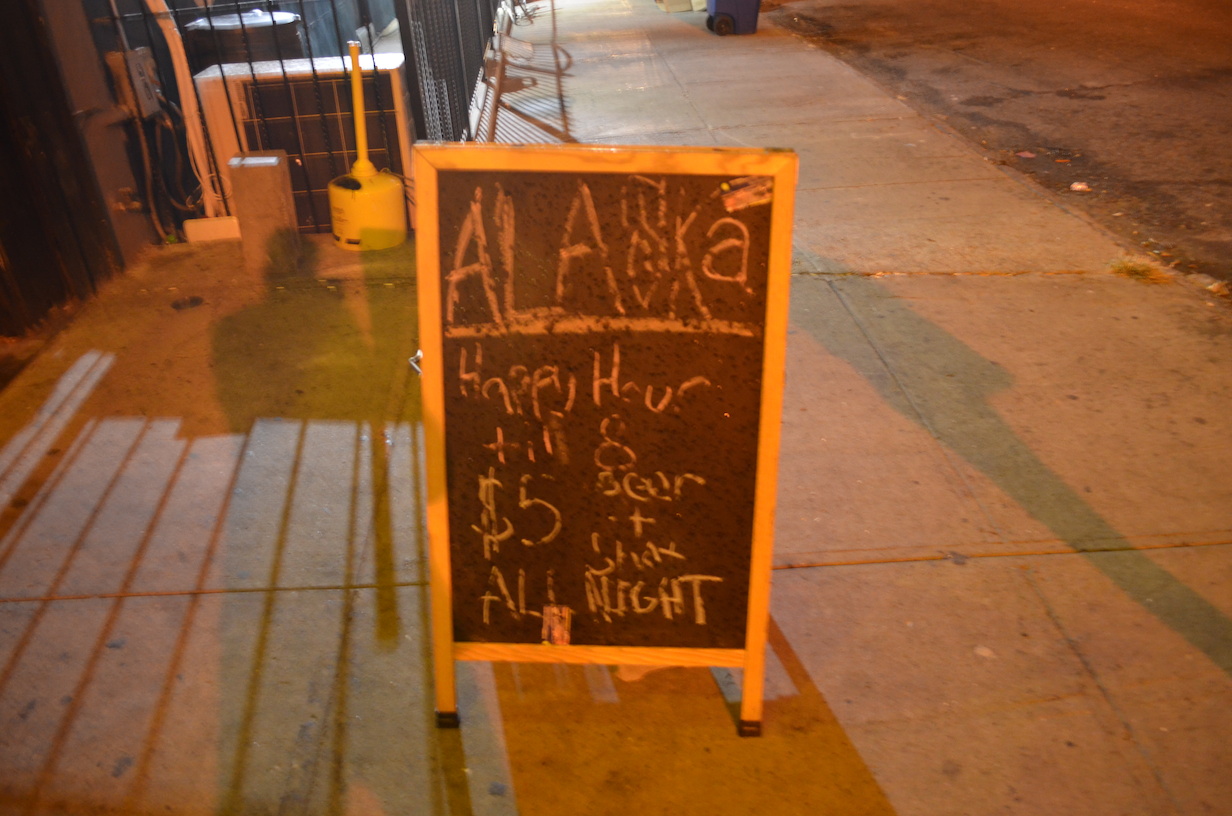 ALASKA
Happy Hour
till 8
$5 Beer
+
Shot
ALL NIGHT